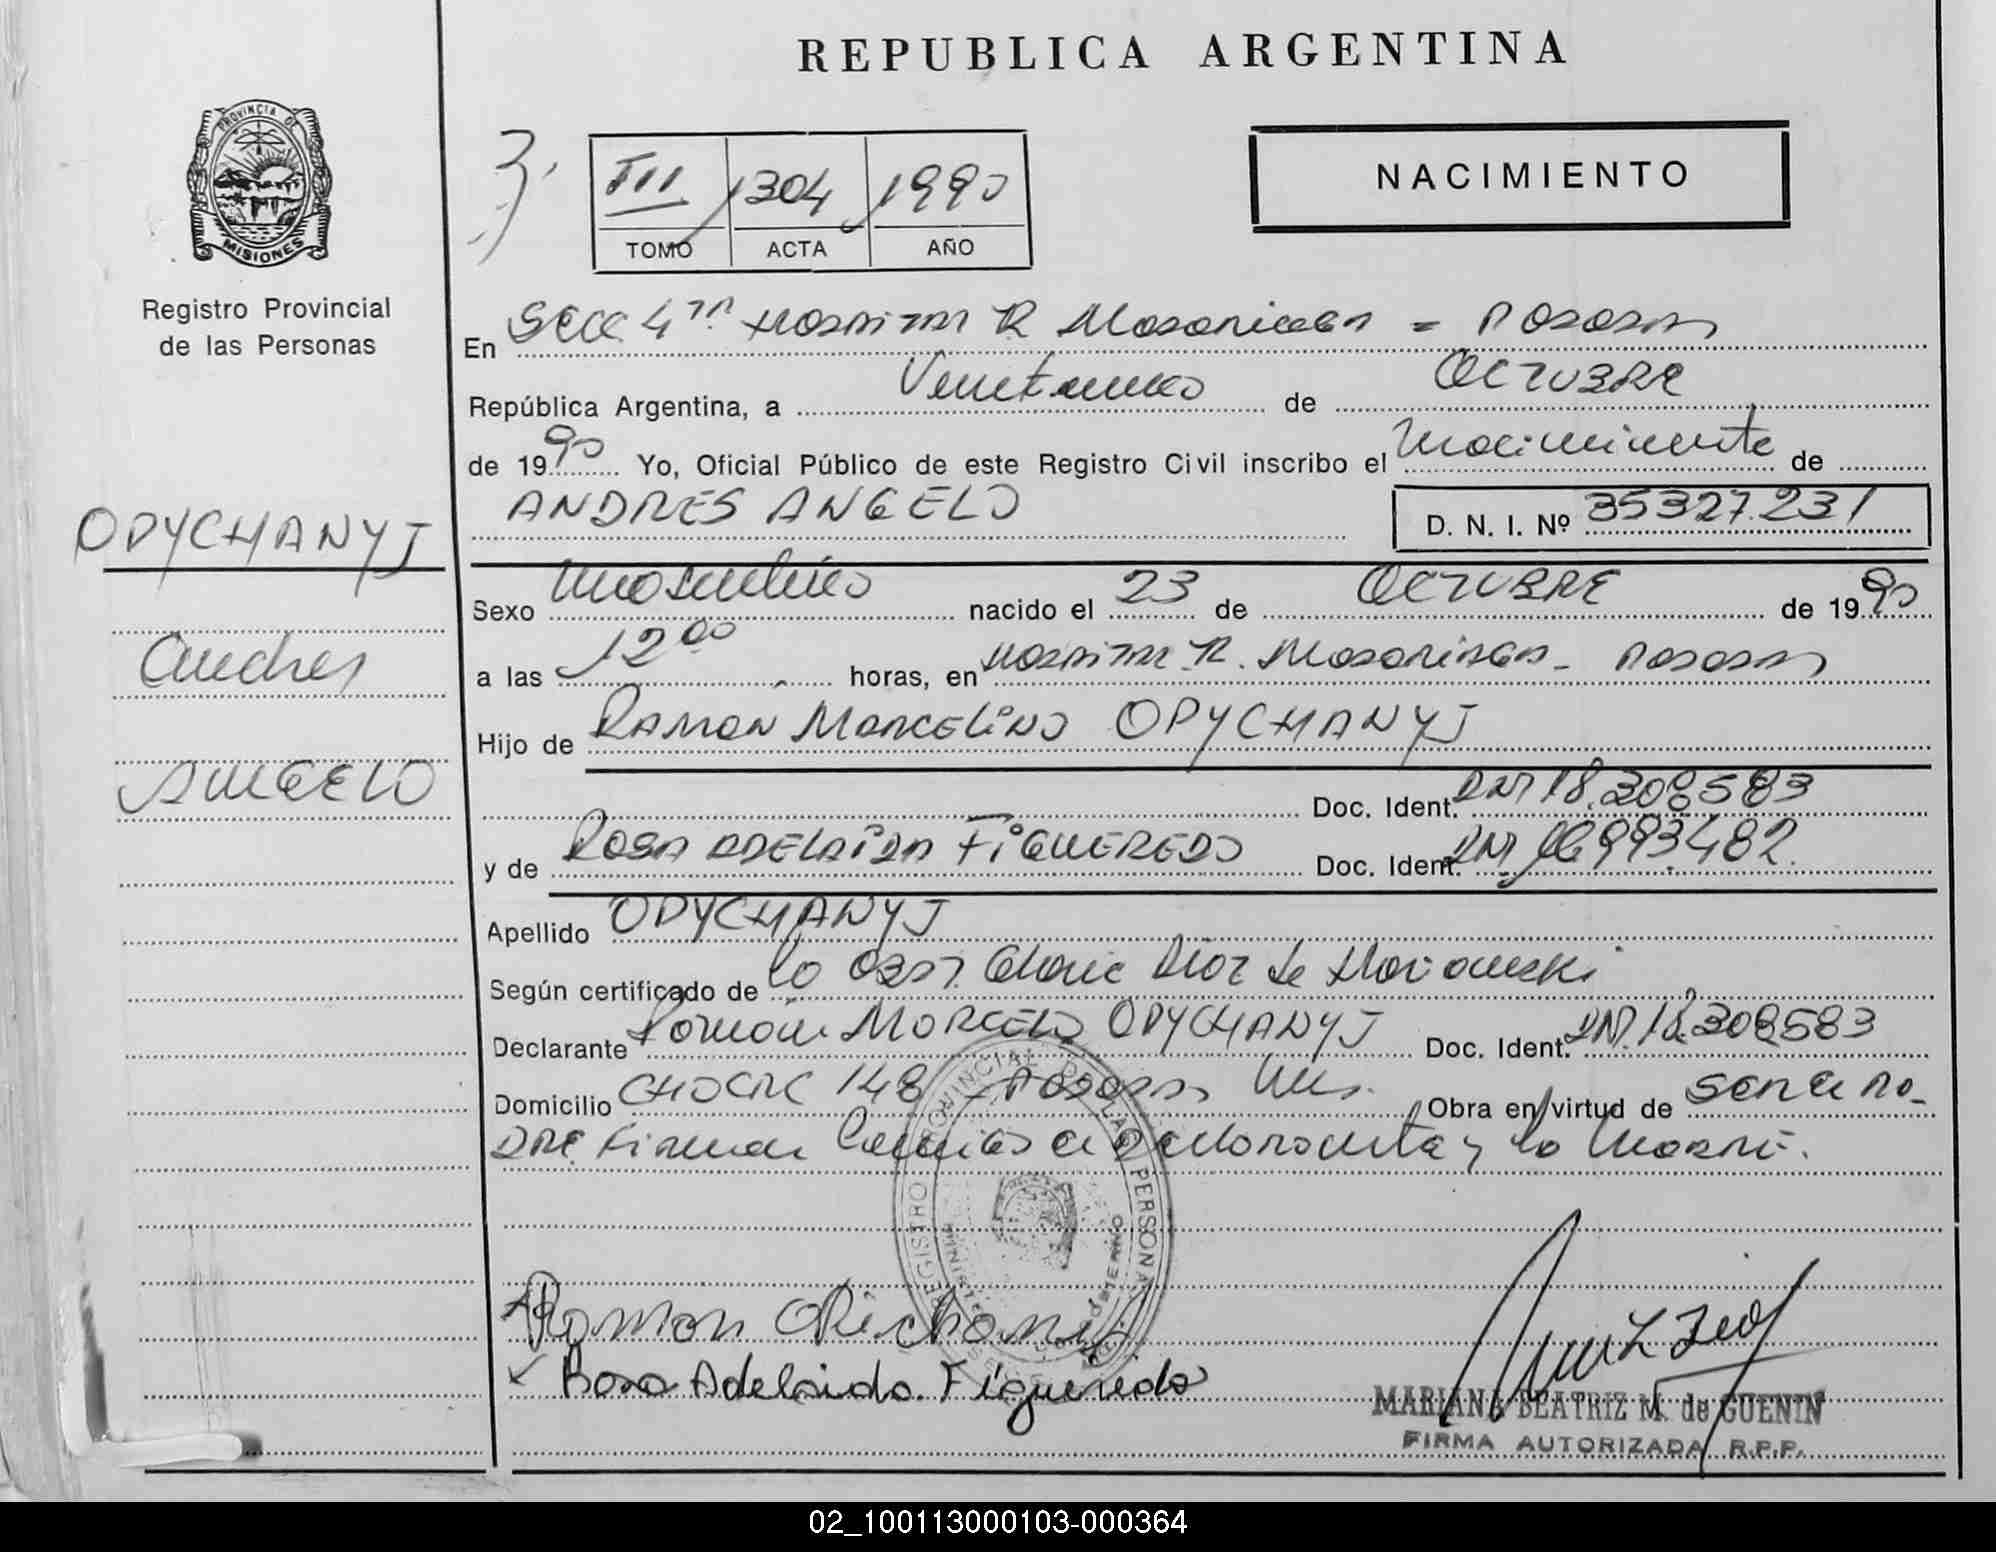 REPUBLICA ARGENTINA
PROVINCIA DE
MISIONES
Registro Provincial
de las Personas
III 1304 1990
TOMO ACTA AÑO
NACIMIENTO
En Secc 4ta Hospital R Madariaga = Posadas
República Argentina, a Veinticinco de OCTUBRE
de 1990 Yo, Oficial Público de este Registro Civil inscribo el Nacimiento de
ANDRES ANGELO D. N. I. Nº 35327.231
OPYCHANYJ
Andres
ANGELO
Sexo Masculino nacido el 23 de OCTUBRE de 1990
a las 12 00 horas, en Hospital R. Madariaga - Posadas
Hijo de RAMON MARCELINO OPYCHANYJ
Doc. Ident. DNI 18.308583
y de ROSA ADELAIDA FIGUEREDO Doc. Ident. DNI 16993.482.
Apellido OPYCHANYJ
Según certificado de la Obst. Gloria Diaz de
Declarante Ramón MARCELO OPYCHANYJ Doc. Ident. DNI. 18.308583
Domicilio 148 - Posadas Mns. Obra en virtud de ser el PA-
DRE. Firman conmigo el declarante y la Madre.
REGISTRO PROVINCIAL DE LAS PERSONAS
Ramon Opichanyj
Rosa Adelaida Figueredo
MARIANA BEATRIZ M. de GUENIN
FIRMA AUTORIZADA R.P.P.
02_100113000103-000364